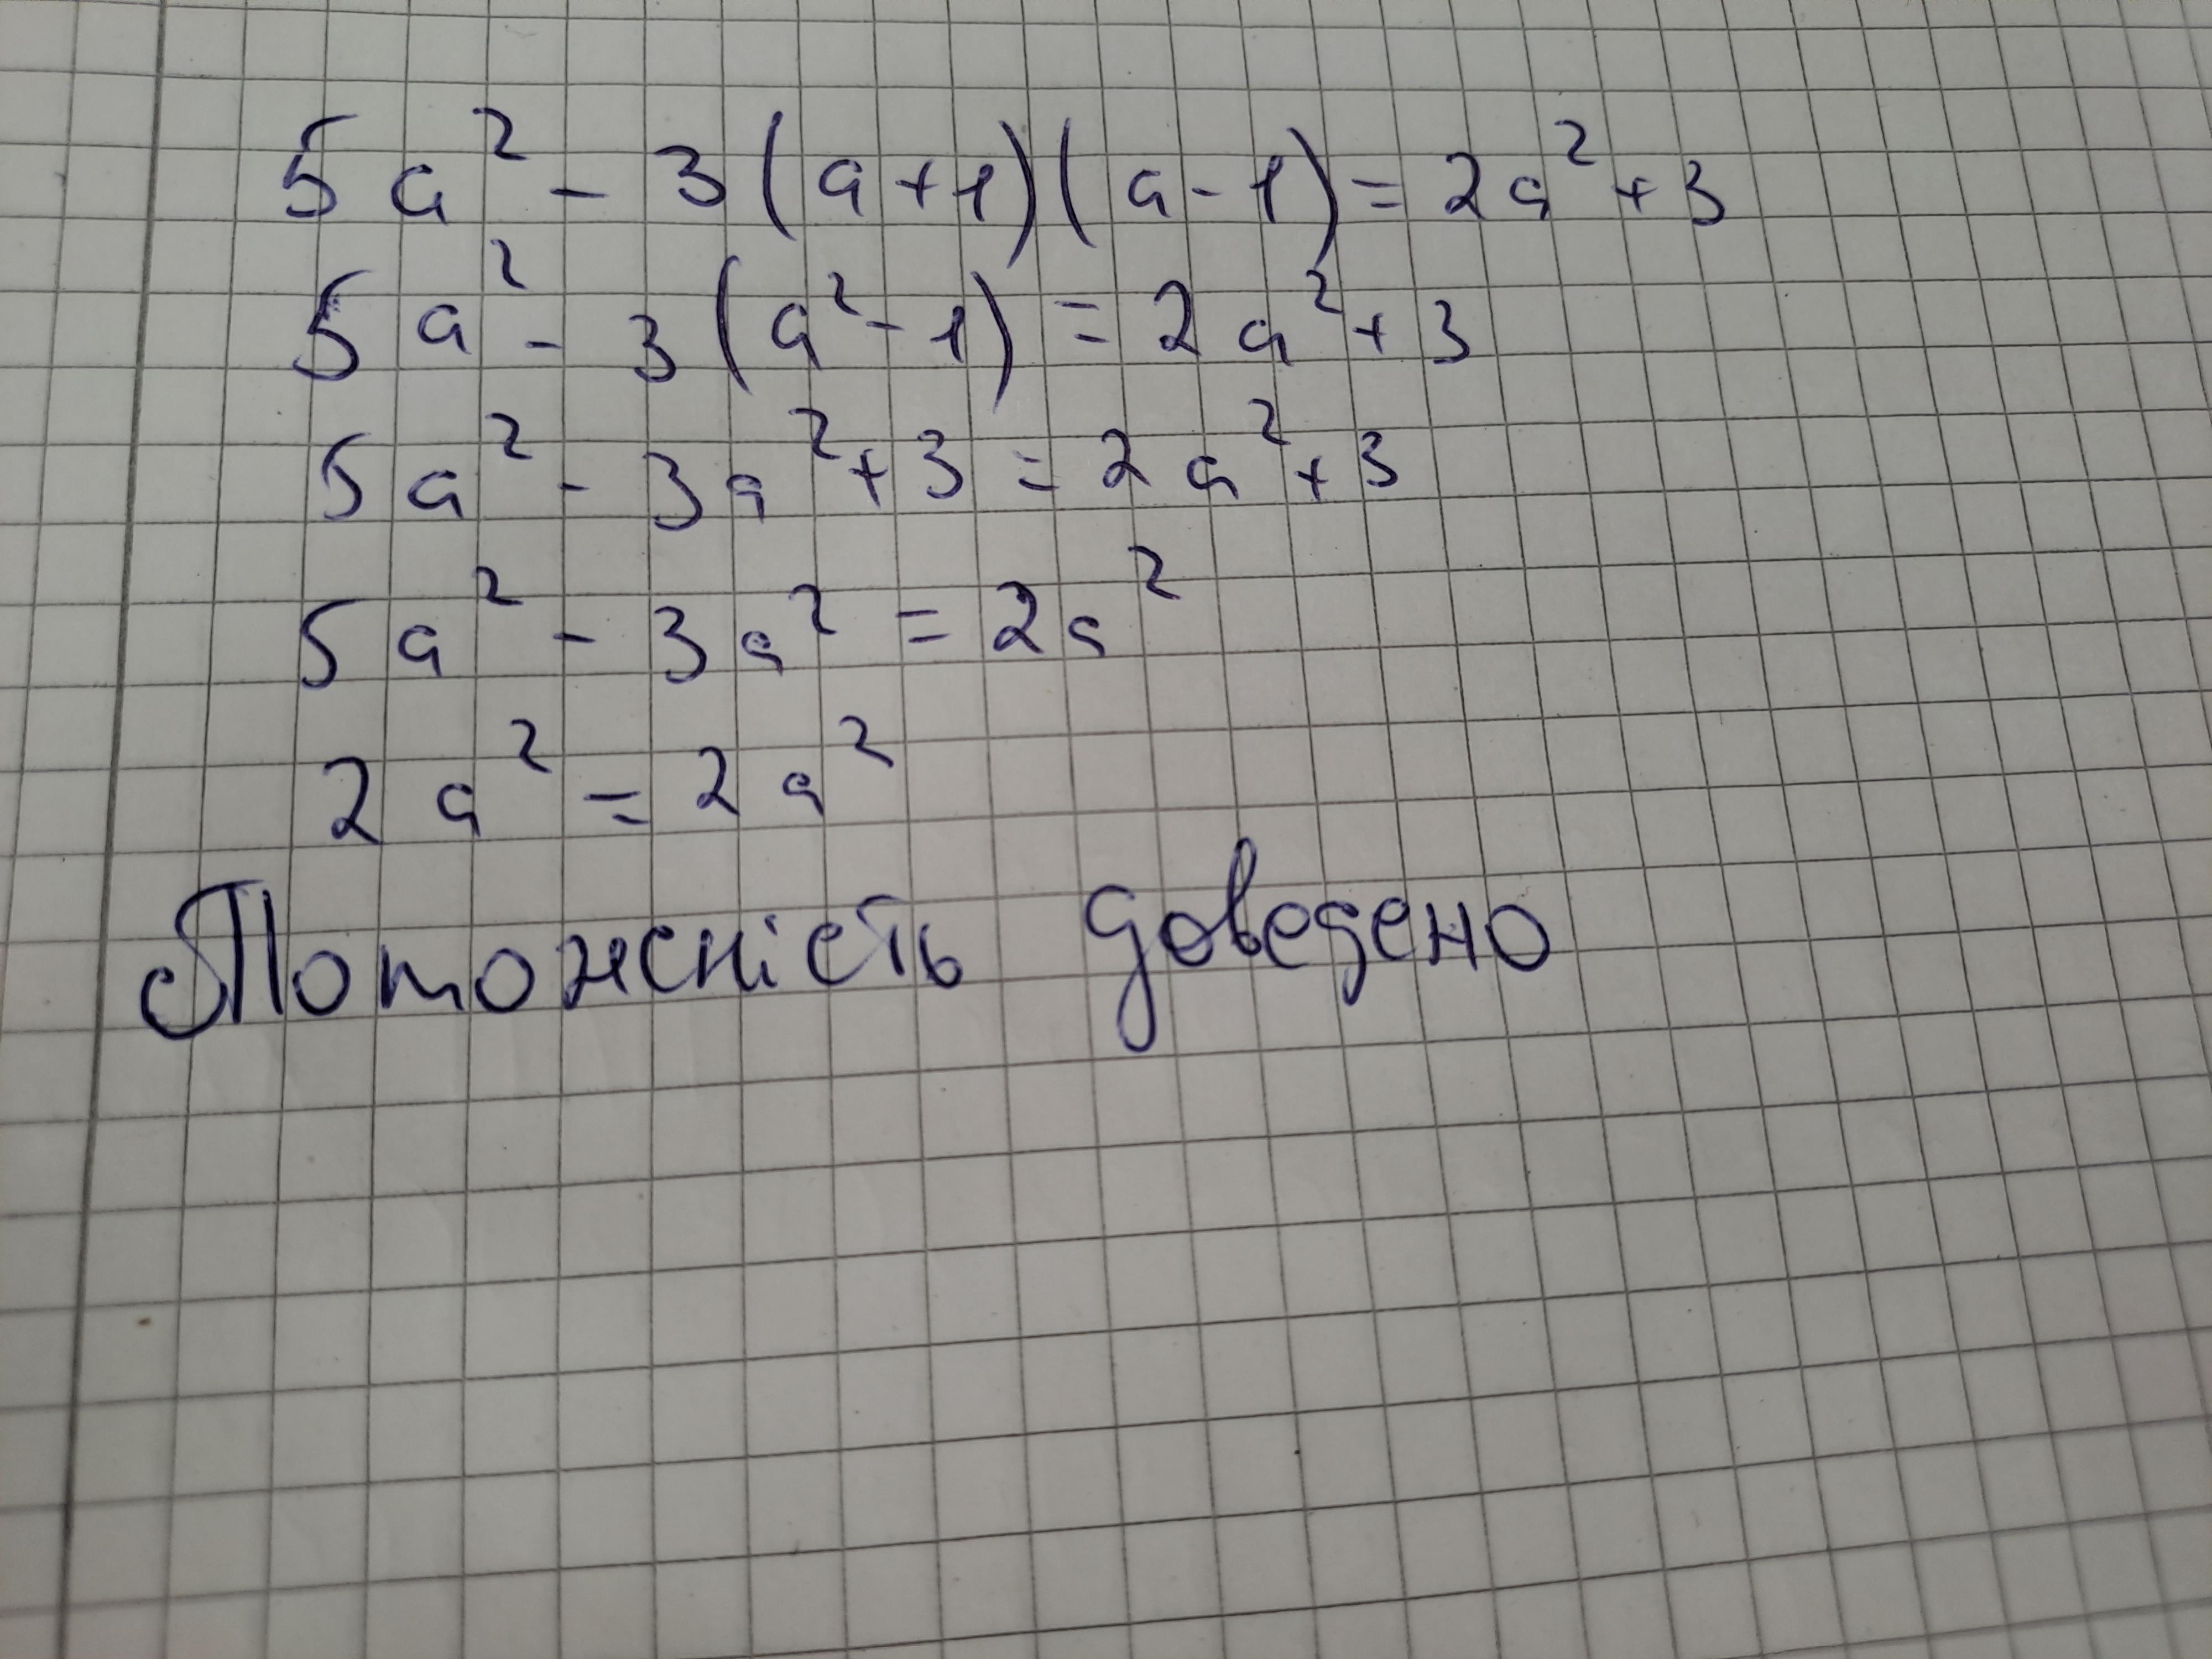 5a² - 3(a+1)(a-1) = 2a² + 3
5a² - 3(a² - 1) = 2a² + 3
5a² - 3a² + 3 = 2a² + 3
5a² - 3a² = 2a²
2a² = 2a²
Тотожність доведено